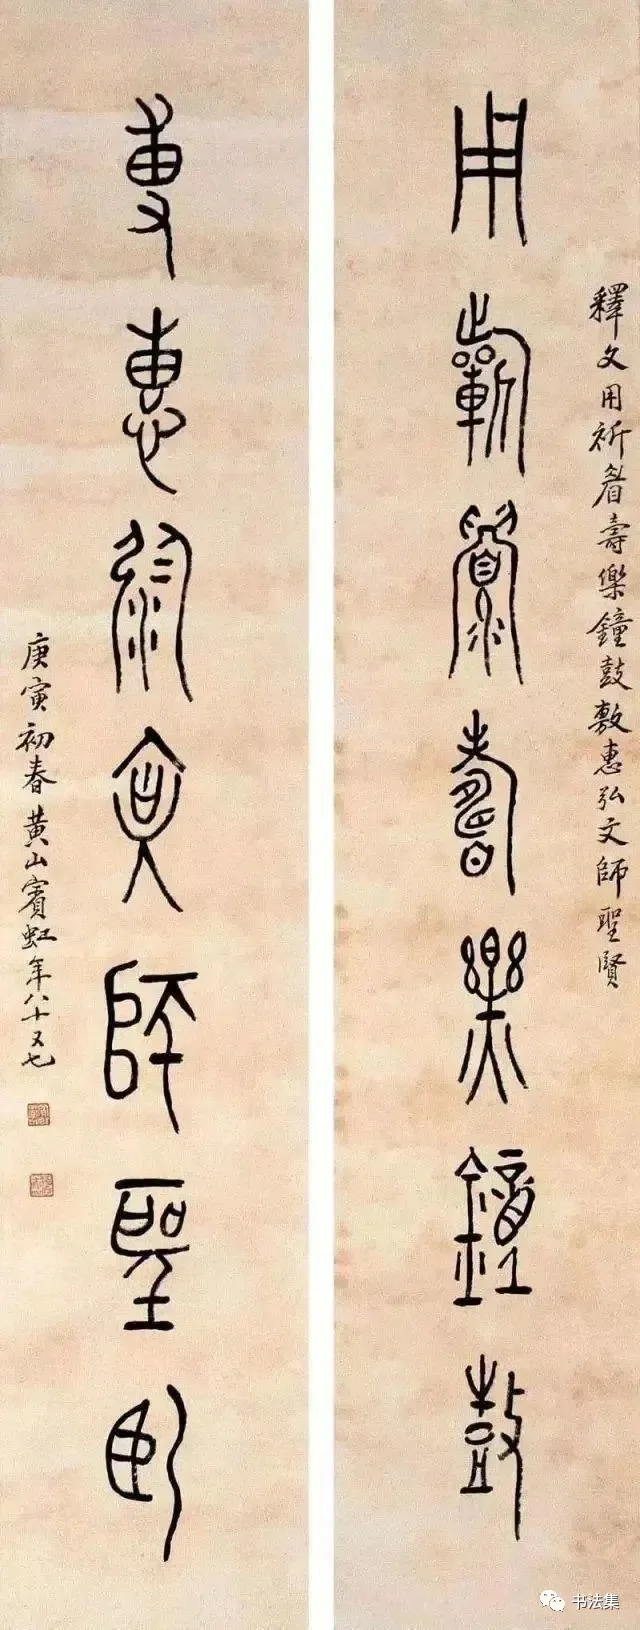 釋文用祈眉壽樂鐘鼓敷惠弘文師聖賢
用祈眉壽樂鐘鼓
敷惠弘文師聖賢
庚寅初春黃山賓虹年八十又七
书法集